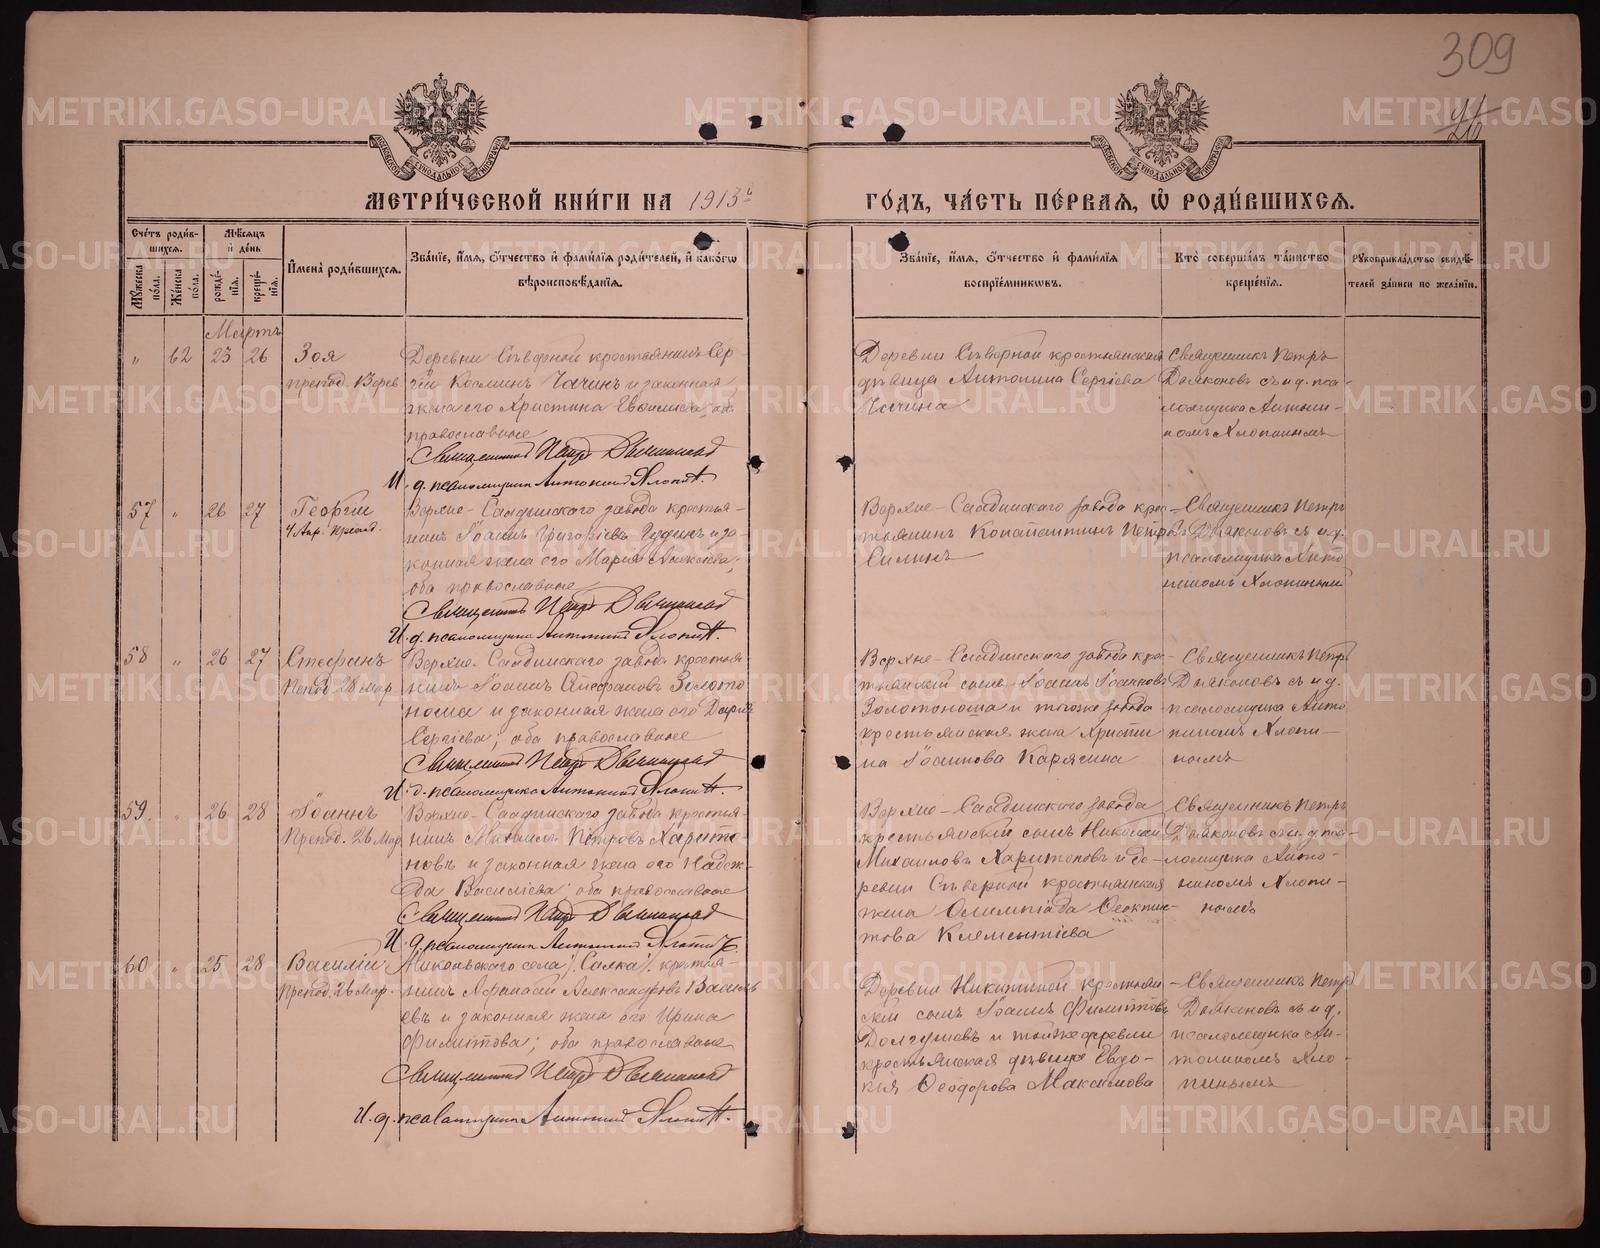 309
МЕТРИ́ЧЕСКОЙ КНИ́ГИ НА 1913й
ГО́ДЪ, ЧА́СТЬ ПЕ́РВАЯ, Ѡ РОДИ́ВШИХСЯ.
Сче́тъ роди́в-
шихся.
Мꙋ́жеска по́ла.
Же́нска по́ла.
Мѣ́сяцъ
и де́нь
рожде́-
нїя.
креще́-
нїя.
И҆мена̀ роди́вшихся.
Зва́нїе, и҆́мя, ѻ҆́тчество и҆ фами́лїя роди́телей, и҆ како́гѡ
вѣроисповѣ́данїя.
Зва́нїе, и҆́мя, ѻ҆́тчество и҆ фами́лїя
воспрїе́мникѡвъ.
Кто̀ соверша́лъ та́инство
креще́нїя.
Рꙋкоприкла́дство свидѣ́-
телей за́писи по жела́нїю.
Мартъ
" 62 23 26 Зоя
препод.
Деревни Сѣверной крестьянинъ Сер-
гій Косминъ Чачинъ и законная
жена его Христина
православные
Священникъ Петръ Дьяконовъ
И. д. псаломщика Антонинъ Хлопинъ.
Деревни Сѣверной крестьянская
дѣвица Антонина Сергіева
Чачина
Священникъ Петръ
Дьяконовъ съ и. д. пса-
ломщика Антони-
номъ Хлопинымъ
57 " 26 27 Георгій
Верхне-Салдинскаго завода крестья-
нинъ Іоаннъ Григоріевъ и за-
конная жена его Марія
оба православные
Священникъ Петръ Дьяконовъ
И. д. псаломщика Антонинъ Хлопинъ.
Верхне-Салдинскаго завода крес-
тьянинъ Константинъ Петровъ
Силинъ
Священникъ Петръ
Дьяконовъ съ и. д.
псаломщика Анто-
ниномъ Хлопинымъ
58 " 26 27 Стефанъ
28 Мар.
Верхне-Салдинскаго завода крестья-
нинъ Іоаннъ Стефановъ Золото-
ноша и законная жена его Дарія
Сергіева; оба православные
Священникъ Петръ Дьяконовъ
И. д. псаломщика Антонинъ Хлопинъ.
Верхне-Салдинскаго завода крес-
тьянскій сынъ Іоаннъ Іоанновъ
Золотоноша и тогоже завода
крестьянская жена Христи-
на Іоаннова Карягина
Священникъ Петръ
Дьяконовъ съ и. д.
псаломщика Анто-
ниномъ Хлопи-
нымъ
59. " 26 28 Іоаннъ
Препод. 26 Мар.
Верхне-Салдинскаго завода крестья-
нинъ Михаилъ Петровъ Харито-
новъ и законная жена его Надеж-
да Василіева; оба православные
Священникъ Петръ Дьяконовъ
И. д. псаломщика Антонинъ Хлопинъ.
Верхне-Салдинскаго завода
крестьянскій сынъ Николай
Михаиловъ Харитоновъ и де-
ревни Сѣверной крестьянская
жена Олимпіада Ѳеоктис-
това Клементіева
Священникъ Петръ
Дьяконовъ съ и. д. пса-
ломщика Анто-
ниномъ Хлопи-
нымъ
60 " 25 28 Василій
Препод. 26 Мар.
Никольскаго села /Салка/ крестья-
нинъ Аѳанасій Александровъ Василь-
евъ и законная жена его Ирина
Филиппова; оба православные
Священникъ Петръ Дьяконовъ
И. д. псаломщика Антонинъ Хлопинъ.
Деревни Никитиной крестьян-
скій сынъ Іоаннъ Филипповъ
Долгушевъ и тойже деревни
крестьянская дѣвица Евдо-
кія Ѳеодорова Максимова
Священникъ Петръ
Дьяконовъ съ и. д.
псаломщика Ан-
тониномъ Хло-
пинымъ
METRIKI.GASO-URAL.RU